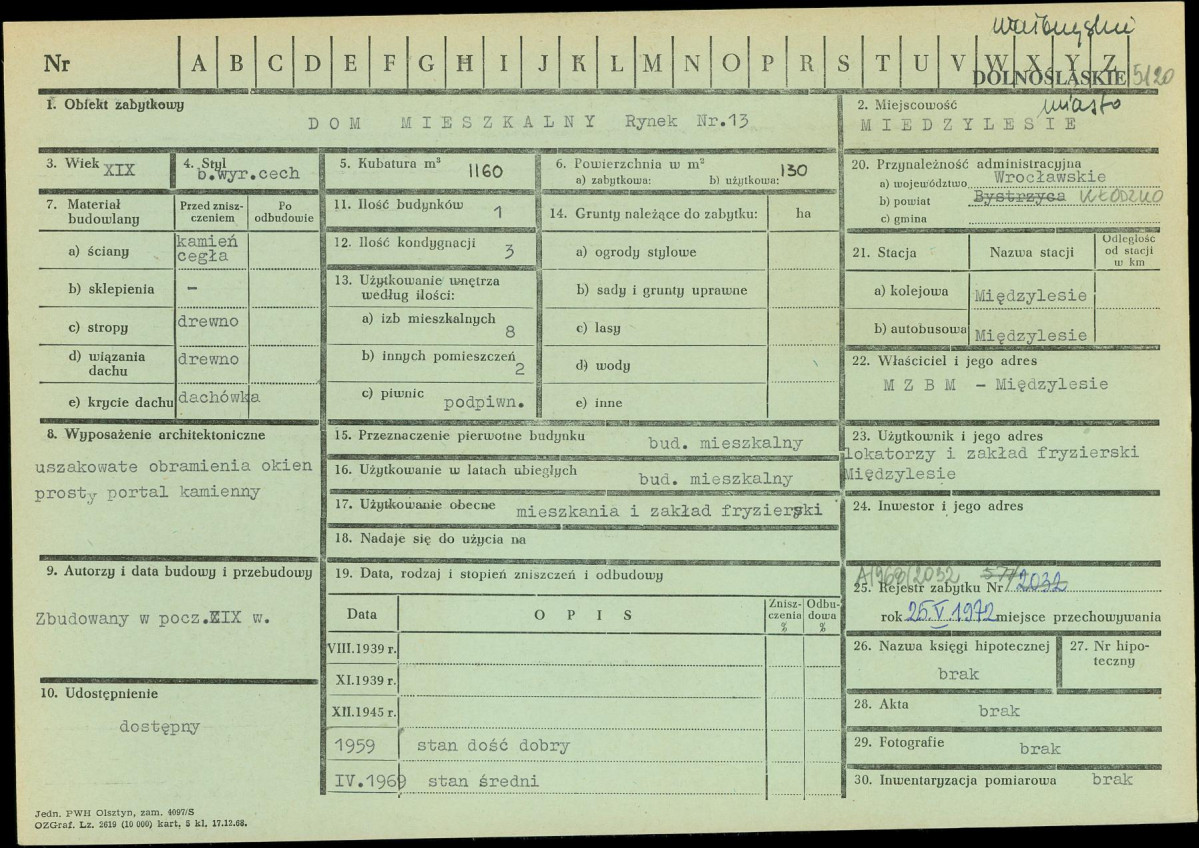 Nr A B C D E F G H I J K L M N O P R S T U V W X Y Z
DOLNOŚLĄSKIE 5120
1. Obiekt zabytkowy
DOM MIESZKALNY Rynek Nr.13
2. Miejscowość miasto
MIEDZYLESIE
3. Wiek XIX
4. Styl
b.wyr.cech
5. Kubatura m³ 1160
6. Powierzchnia w m² 130
a) zabytkowa: b) użytkowa:
20. Przynależność administracyjna
a) województwo Wrocławskie
b) powiat Bystrzyca KŁODZKO
c) gmina
7. Materiał budowlany
Przed zniszczeniem
Po odbudowie
a) ściany kamień cegła
b) sklepienia -
c) stropy drewno
d) wiązania dachu drewno
e) krycie dachu dachówka
11. Ilość budynków 1
12. Ilość kondygnacji 3
13. Użytkowanie wnętrza
według ilości:
a) izb mieszkalnych 8
b) innych pomieszczeń 2
c) piwnic podpiwn.
14. Grunty należące do zabytku: ha
a) ogrody stylowe
b) sady i grunty uprawne
c) lasy
d) wody
e) inne
21. Stacja Nazwa stacji Odległość od stacji w km
a) kolejowa Międzylesie
b) autobusowa Międzylesie
22. Właściciel i jego adres
M Z B M - Międzylesie
8. Wyposażenie architektoniczne
uszakowate obramienia okien
prosty portal kamienny
15. Przeznaczenie pierwotne budynku bud. mieszkalny
16. Użytkowanie w latach ubiegłych bud. mieszkalny
17. Użytkowanie obecne mieszkania i zakład fryzierski
18. Nadaje się do użycia na
23. Użytkownik i jego adres
lokatorzy i zakład fryzierski
Międzylesie
24. Inwestor i jego adres
9. Autorzy i data budowy i przebudowy
Zbudowany w pocz.XIX w.
10. Udostępnienie
dostępny
19. Data, rodzaj i stopień zniszczeń i odbudowy
Data OPIS Zniszczenia % Odbudowa %
VIII.1939 r.
XI.1939 r.
XII.1945 r.
1959 stan dość dobry
IV.1969 stan średni
A/1969/2032 577/2032
25. Rejestr zabytku Nr
rok 25.V.1972 miejsce przechowywania
26. Nazwa księgi hipotecznej
brak
27. Nr hipoteczny
28. Akta brak
29. Fotografie brak
30. Inwentaryzacja pomiarowa brak
Jedn. PWH Olsztyn, zam. 4097/S
OZGraf. Lz. 2619 (10 000) kart. 5 kl. 17.12.68.